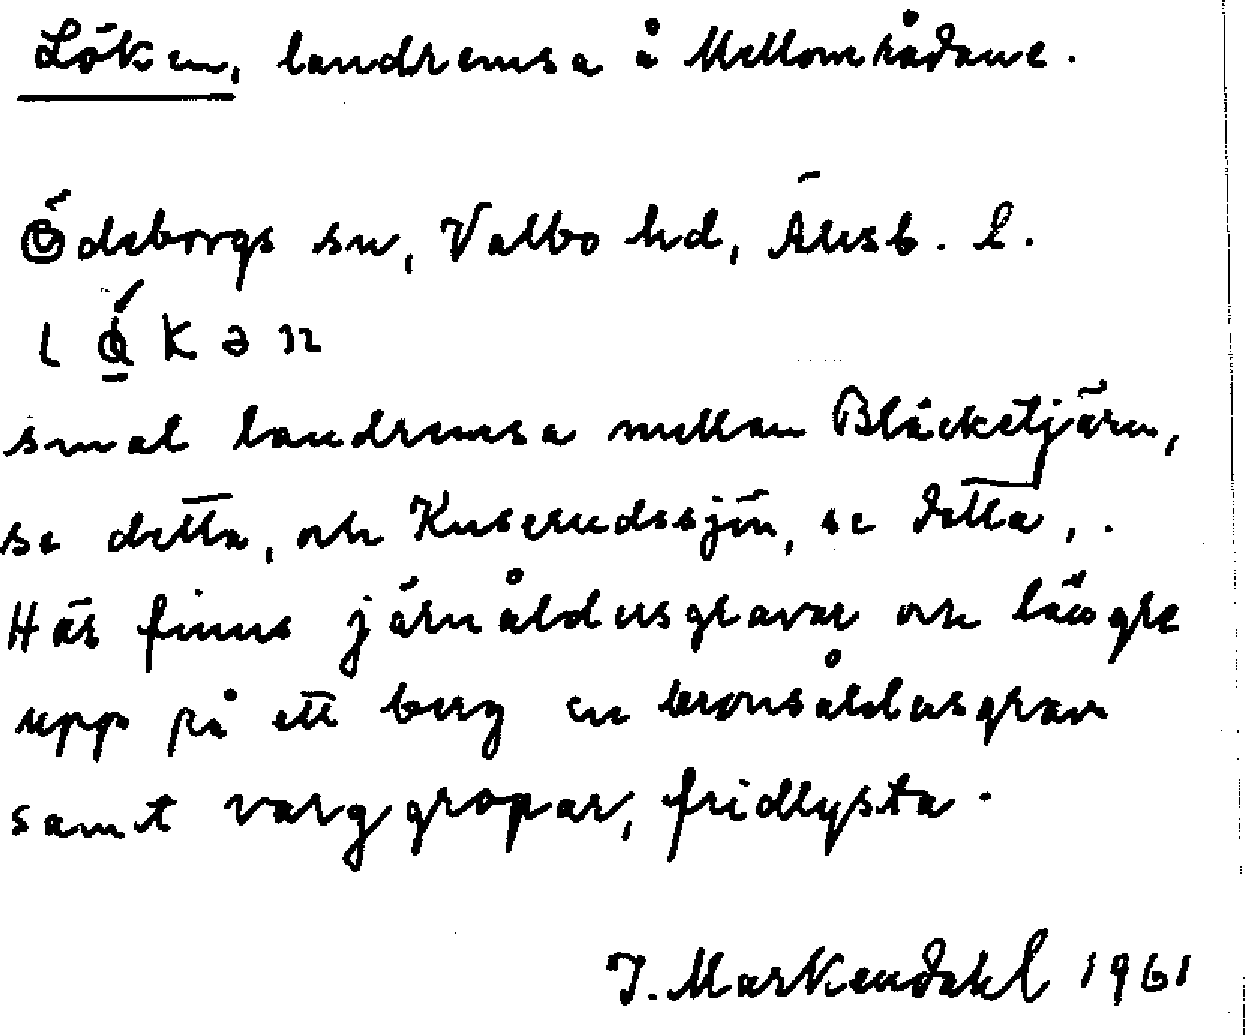 Löken, landremsa å Mellområdane.
Ödeborgs sn, Valbo hd, Älvsb. l.
smal landremsa mellan Bläcketjärn,
se detta, och Kuserudssjön, se detta, .
Här finns järnåldersgravar och längre
upp på ett berg en bronsåldersgrav
samt varggropar, fridlysta.
J. Markendahl 1961